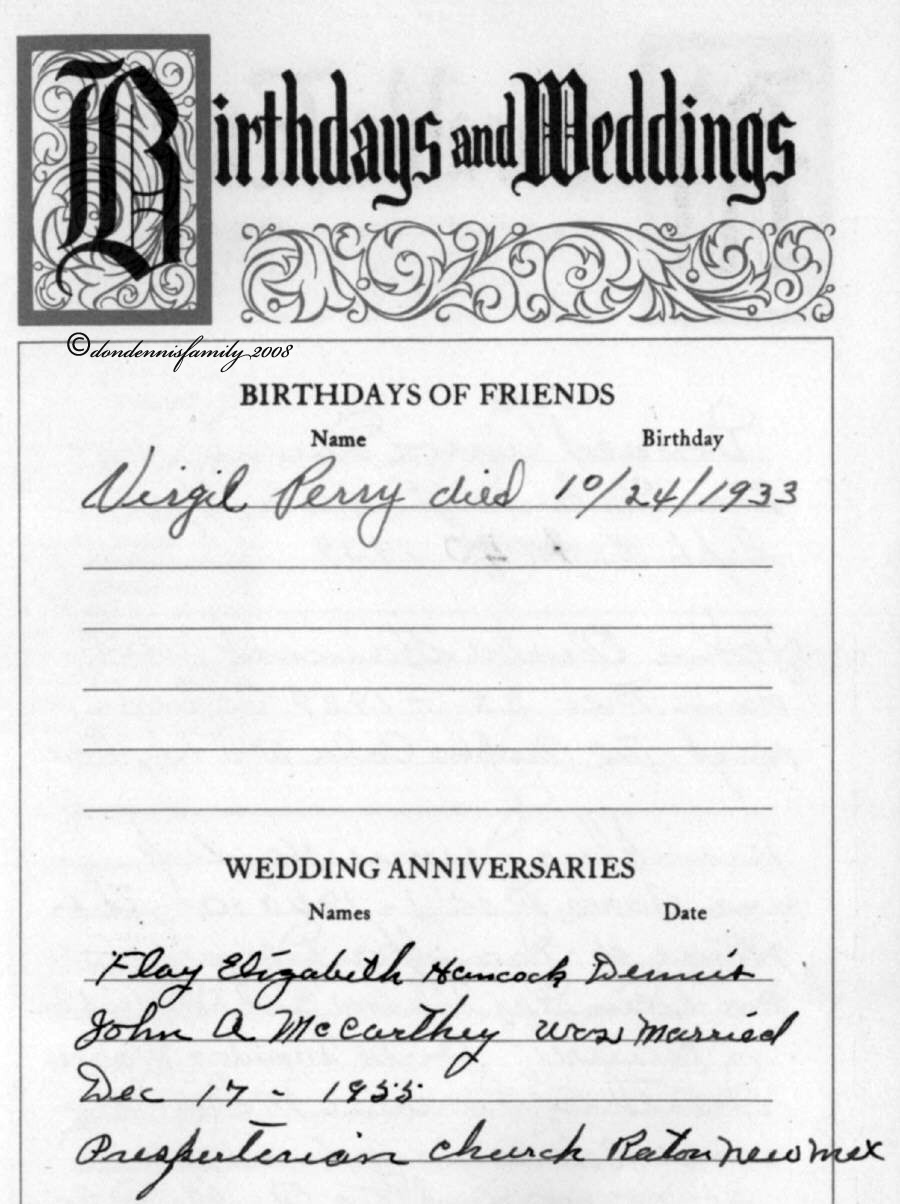 Birthdays and Weddings
©dondennisfamily 2008
BIRTHDAYS OF FRIENDS
Name Birthday
Virgil Perry died 10/24/1933
WEDDING ANNIVERSARIES
Names Date
Flay Elizabeth Hancock Dennis
John A McCarthey was married
Dec 17 - 1955
Presperterian church Raton new mex